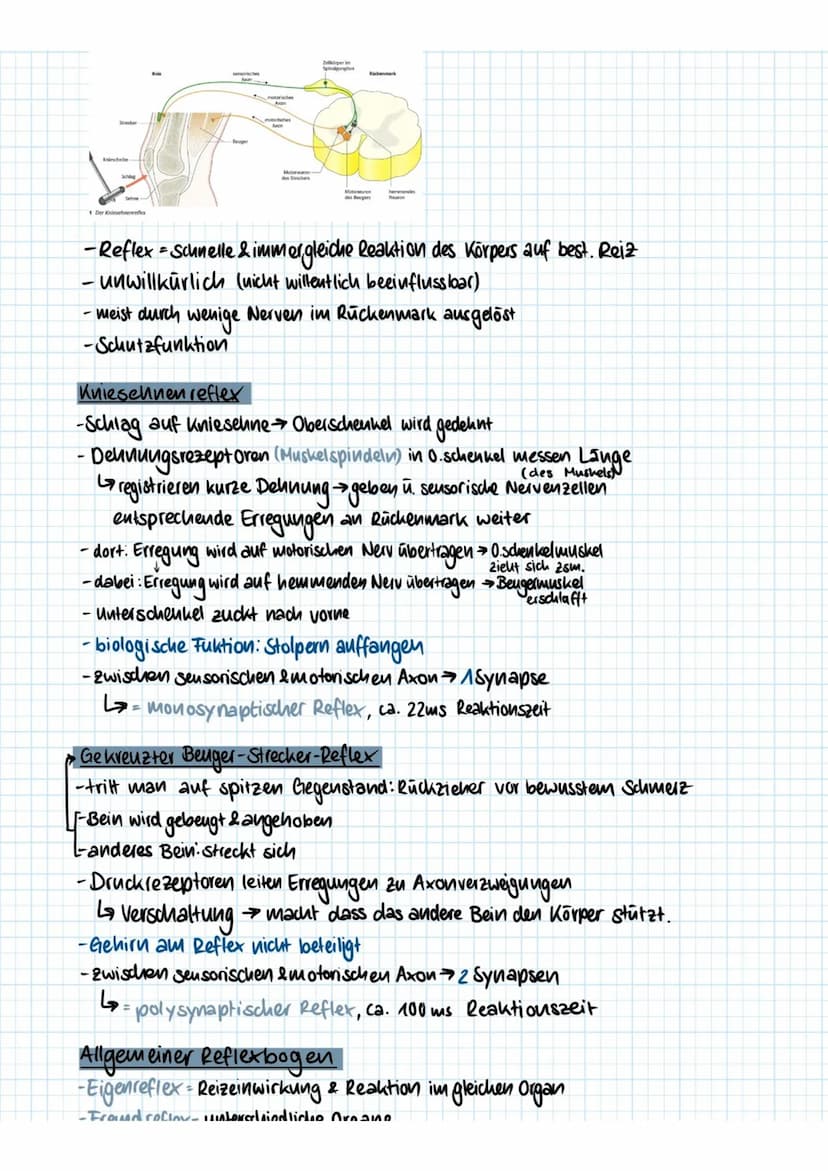 Knie
sensorisches Axon
Zellkörper im Spinalganglion
Rückenmark
motorisches Axon
motorisches Axon
Strecker
Beuger
Kniescheibe
Schlag
Sehne
Motoneuron des Streckers
Motoneuron des Beugers
hemmendes Neuron
1 Der Kniesehnenreflex
- Reflex = schnelle & immergleiche Reaktion des Körpers auf best. Reiz
- unwillkürlich (nicht willentlich beeinflussbar)
- meist durch wenige Nerven im Rückenmark ausgelöst
- Schutzfunktion
Kniesehnenreflex
- Schlag auf Kniesehne → Oberschenkel wird gedehnt
- Dehnungsrezeptoren (Muskelspindeln) in O.schenkel messen Länge
(des Muskels)
↳ registrieren kurze Dehnung → geben ü. sensorische Nervenzellen
entsprechende Erregungen an Rückenmark weiter
- dort: Erregung wird auf motorischen Nerv übertragen → O.schenkelmuskel
zieht sich zsm.
- dabei: Erregung wird auf hemmenden Nerv übertragen → Beugermuskel
erschlafft
- Unterschenkel zuckt nach vorne
- biologische Fuktion: Stolpern auffangen
- zwischen sensorischen & motorischen Axon → 1 Synapse
↳ = monosynaptischer Reflex, ca. 22ms Reaktionszeit
Gekreuzter Beuger-Strecker-Reflex
- tritt man auf spitzen Gegenstand: Rückzieher vor bewusstem Schmerz
- Bein wird gebeugt & angehoben
- anderes Bein: streckt sich
- Druckrezeptoren leiten Erregungen zu Axonverzweigungen
↳ Verschaltung → macht dass das andere Bein den Körper stützt.
- Gehirn am Reflex nicht beteiligt
- zwischen sensorischen & motorischen Axon → 2 Synapsen
↳ = polysynaptischer Reflex, ca. 100 ms Reaktionszeit
Allgemeiner Reflexbogen
- Eigenreflex = Reizeinwirkung & Reaktion im gleichen Organ
- Fremdreflex = unterschiedliche Organe